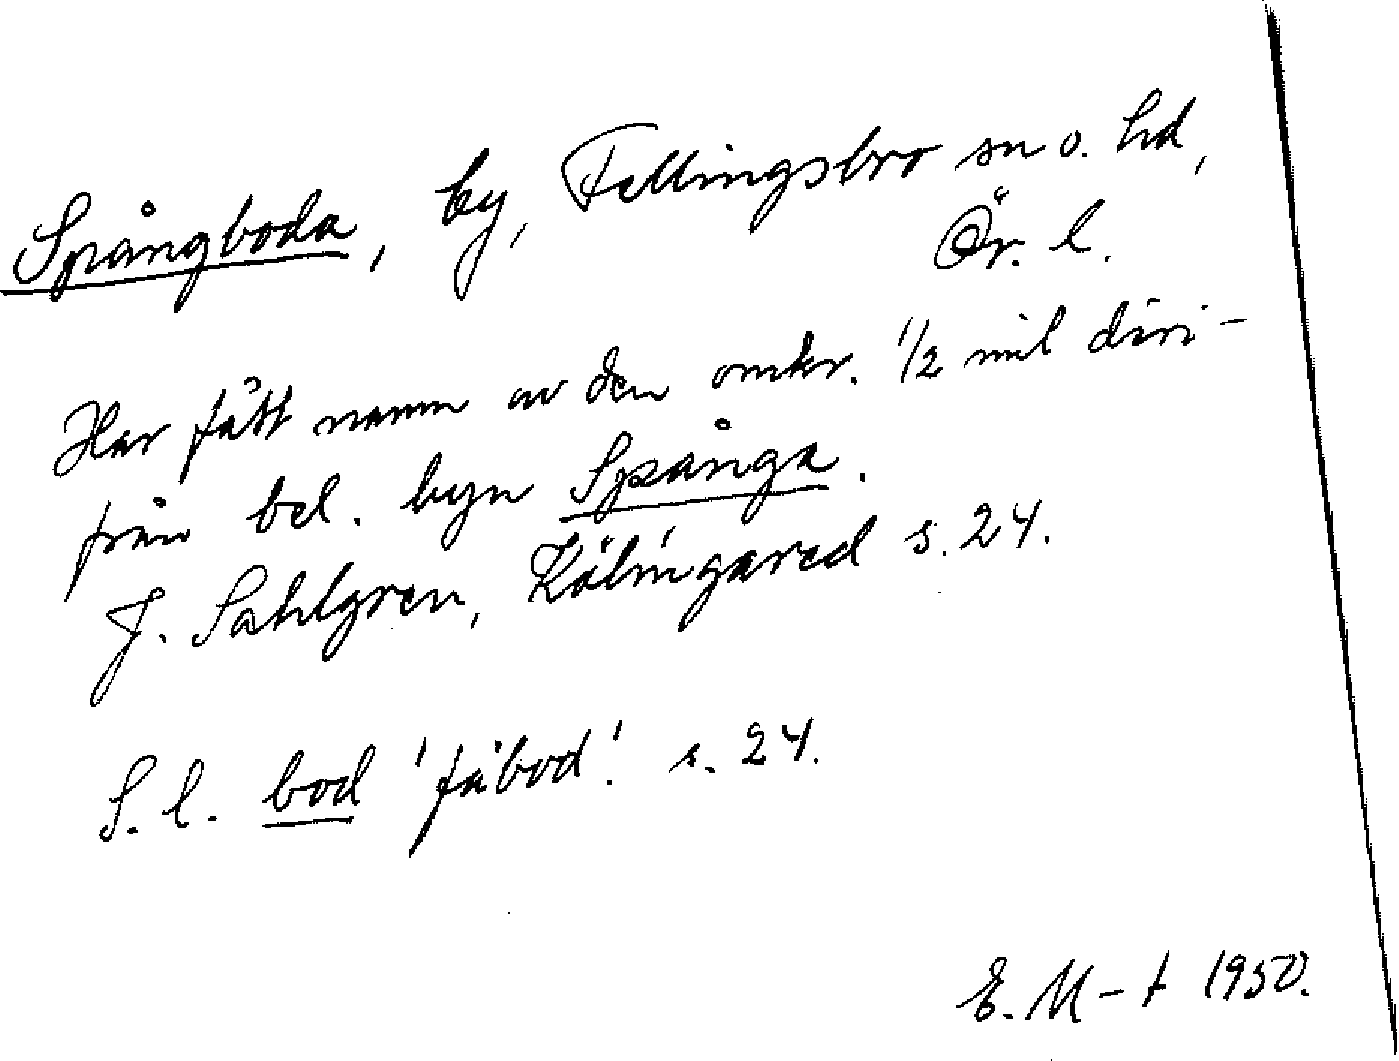 Spångboda, by, Fellingsbro sn o. hd,
Ör. l.
Har fått namn av den omkr. 1/2 mil däri-
från bel. byn Spånga.
J. Sahlgren, Kölingared s. 24.
S. l. bod 'fäbod'. s. 24.
E. M-t 1950.